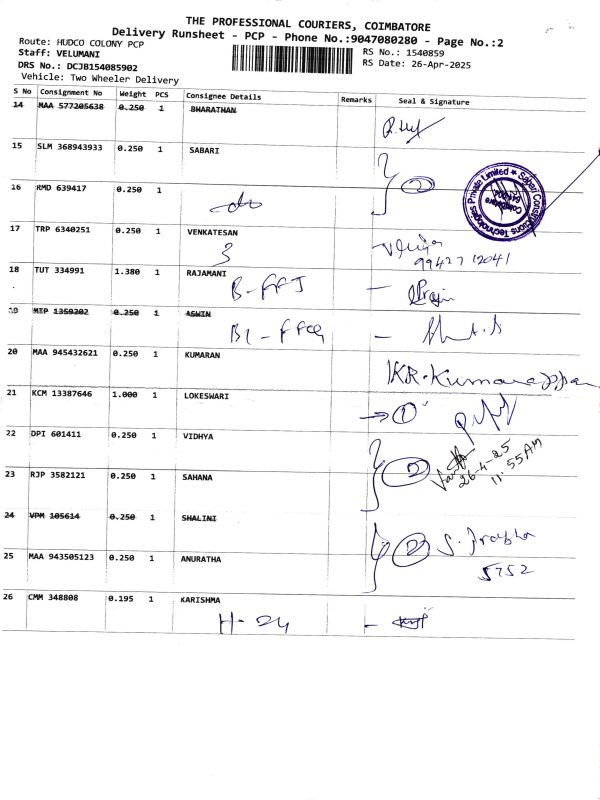 THE PROFESSIONAL COURIERS, COIMBATORE
Delivery Runsheet - PCP - Phone No.:9047080280 - Page No.:2
Route: HUDCO COLONY PCP
RS No.: 1540859
Staff: VELUMANI
RS Date: 26-Apr-2025
DRS No.: DCJB154085902
Vehicle: Two Wheeler Delivery
S No Consignment No Weight PCS Consignee Details Remarks Seal & Signature
14 MAA 577205638 0.250 1 BHARATHAN
15 SLM 368943933 0.250 1 SABARI
2
Sabari Constructions Technologies Private Limited ★
Coimbatore
16 RMD 639417 0.250 1
do
17 TRP 6340251 0.250 1 VENKATESAN
3
99427 12041
18 TUT 334991 1.380 1 RAJAMANI
B-FFJ -
19 MTP 1359202 0.250 1 ASWIN
-
20 MAA 945432621 0.250 1 KUMARAN
KR.Kumarappan
21 KCM 13387646 1.000 1 LOKESWARI
→ 1
22 DPI 601411 0.250 1 VIDHYA
2
26-4-25
11.55AM
23 RJP 3582121 0.250 1 SAHANA
24 VPM 105614 0.250 1 SHALINI
2 S. Prabha
5752
25 MAA 943505123 0.250 1 ANURATHA
26 CMM 348808 0.195 1 KARISHMA
H-24 -